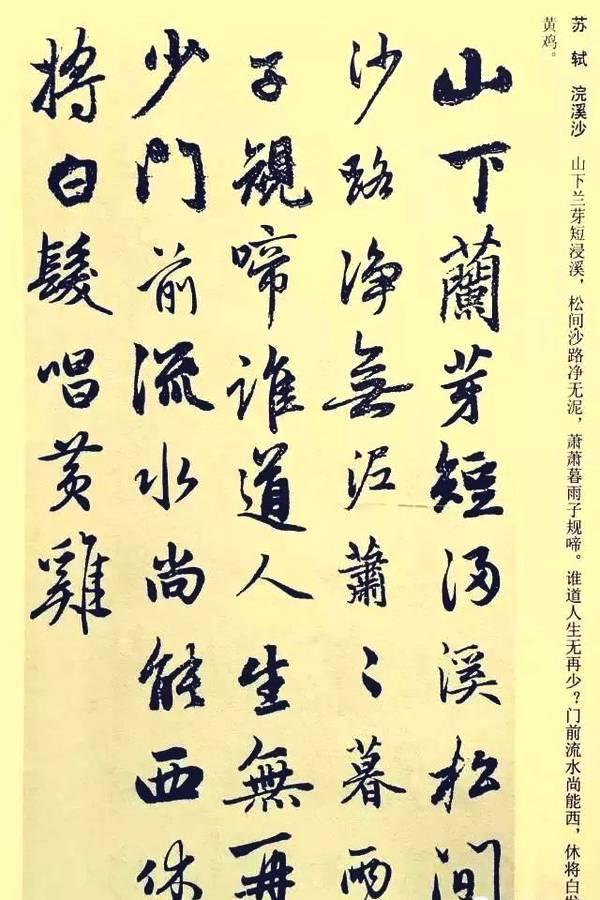 苏 轼 浣溪沙 山下兰芽短浸溪，松间沙路净无泥，萧萧暮雨子规啼。谁道人生无再少？门前流水尚能西，休将白发
黄鸡。
山下蘭芽短浸溪松間
沙路净無泥蕭〻暮雨
子規啼誰道人生無再
少門前流水尚能西休
將白髮唱黃雞